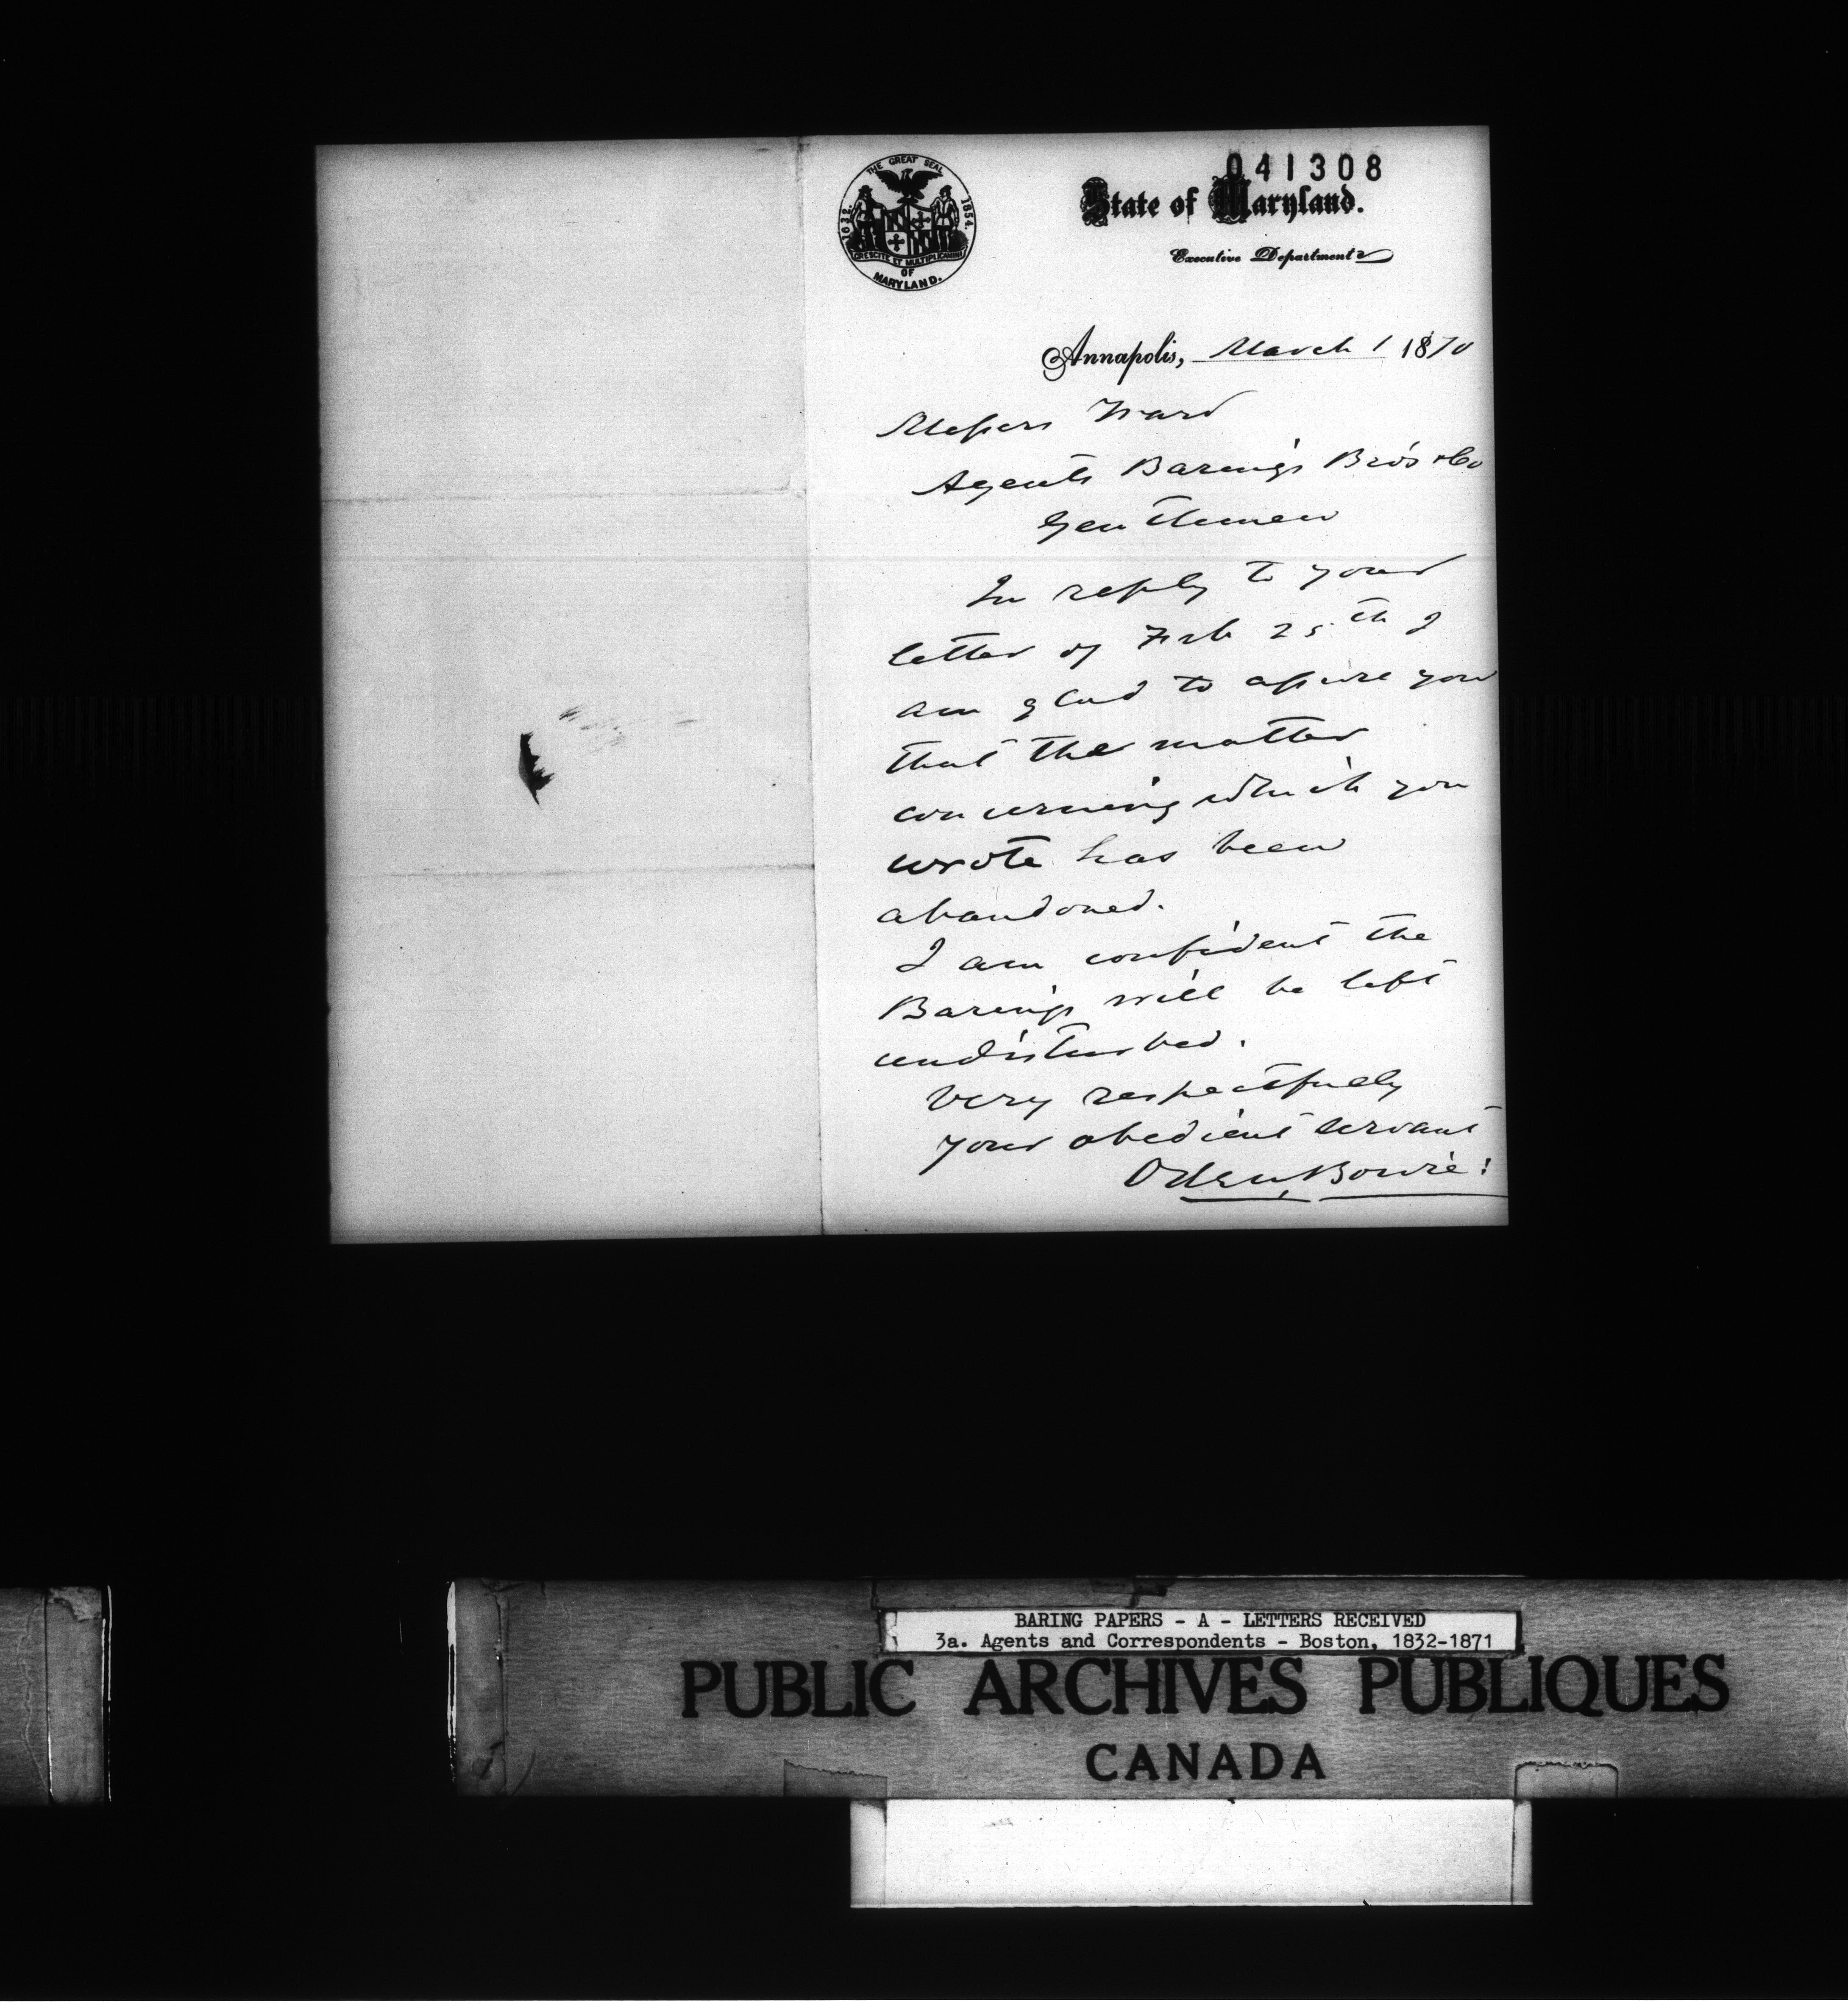 041308
THE GREAT SEAL
1632.
1854.
CRESCITE ET MULTIPLICAMINI
OF
MARYLAND.
State of Maryland.
Executive Department
Annapolis, March 1 1870
Messrs Ward
Agents Baring's Bro's & Co
Gentlemen
In reply to your
letter of Feb 25th I
am glad to assure you
that the matter
concerning which you
wrote has been
abandoned.
I am confident the
Barings will be left
undisturbed.
Very respectfully
your obedient servant
Oden Bowie
BARING PAPERS - A - LETTERS RECEIVED
3a. Agents and Correspondents - Boston, 1832-1871
PUBLIC ARCHIVES PUBLIQUES
CANADA